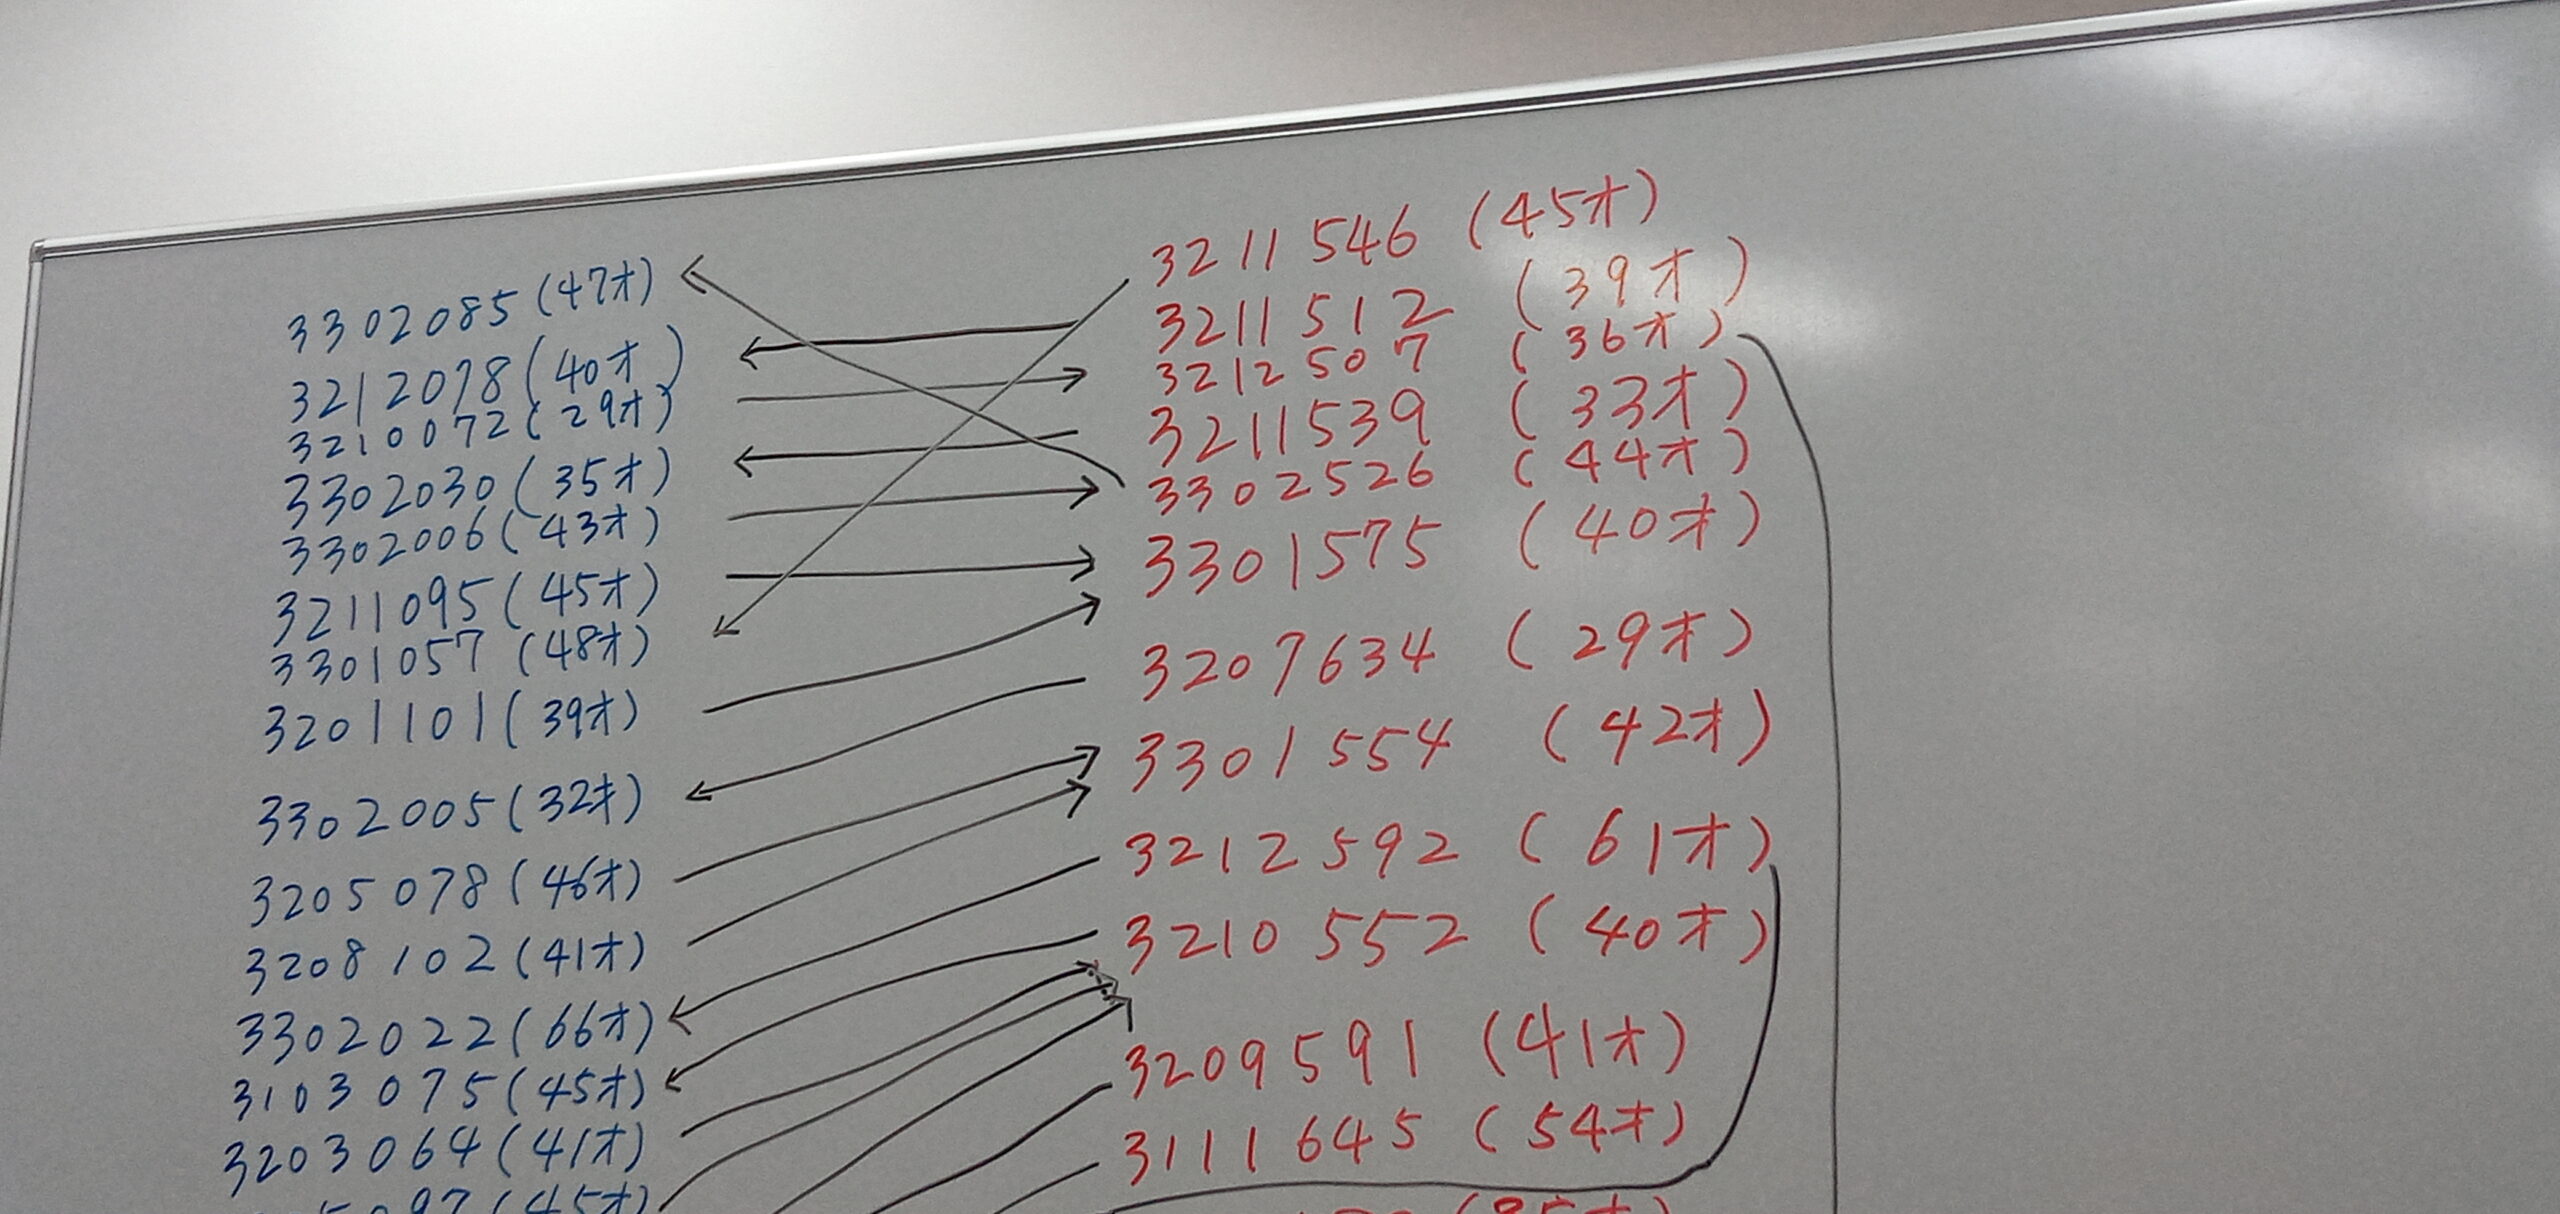 3302085(47才)
3212078(40才)
3210072(29才)
3302030(35才)
3302006(43才)
3211095(45才)
3301057(48才)
3201101(39才)
3302005(32才)
3205078(46才)
3208102(41才)
3302022(66才)
3103075(45才)
3203064(41才)
3211546(45才)
3211512(39才)
3212507(36才)
3211539(33才)
3302526(44才)
3301575(40才)
3207634(29才)
3301554(42才)
3212592(61才)
3210552(40才)
3209591(41才)
3111645(54才)